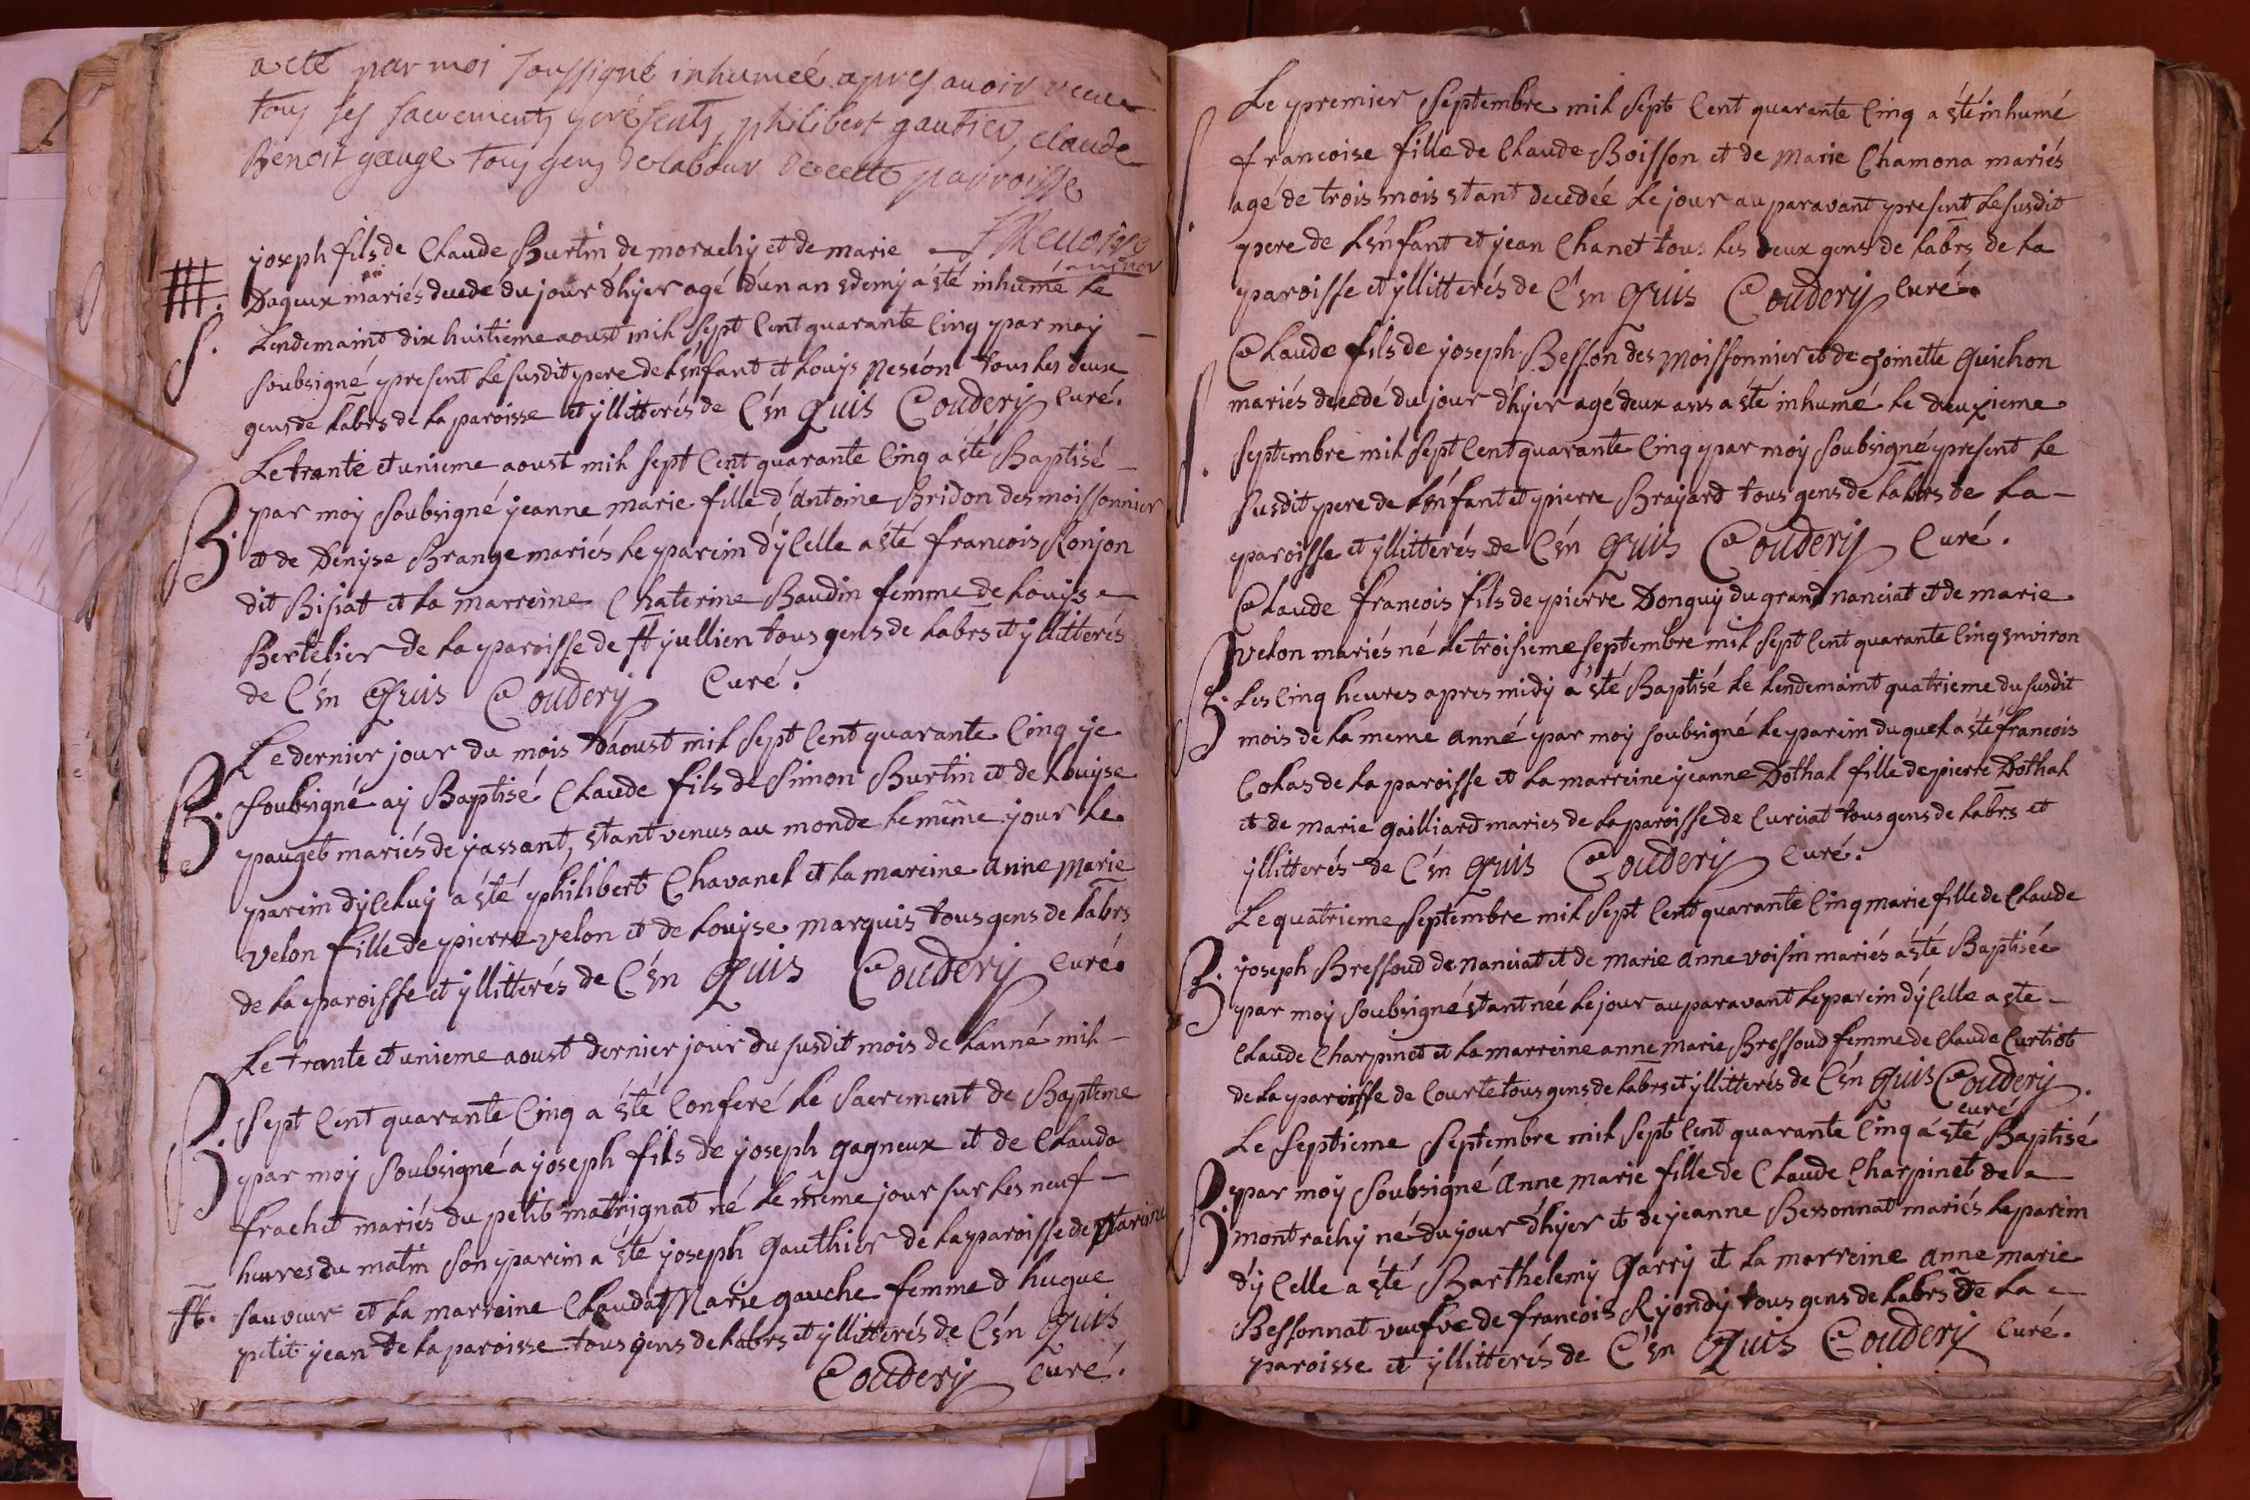 a eté par moi soussigné inhumeé apres auoir receu
tous ses sacrements presents, philibert gautier, claude
Benoit gauge tous gens de labour de cette parroisse
joseph fils de Claude Burtin de morachy et de marie
Dageux mariés decede du jour d'hyer agé d'un an et demy a été inhumé le
S. Lendemaint dix huitieme aoust mil sept Cent quarante Cinq par moy
soubsigné present le susdit pere de l'énfant et Louys tous les deux
gens de labrs de la paroisse et yllitterés de C'en Quis Coudery Curé.
Le trante et unieme aoust mil sept Cent quarante Cinq a été Baptisé
B. par moy soubsigné jeanne marie fille d'antoine Bridon des moissonnier
et de Denyse Brange mariés le parein d'yCelle a été francois Ronjon
dit Bisiat et la marreine Chaterine Baudin femme de Louys
Bertelier de la paroisse de St jullien tous gens de labrs et yllitterés
de C'en Quis Coudery Curé.
Le dernier jour du mois D'aoust mil sept Cent quarante Cinq je
B. soubsigné ay Baptisé Claude fils de Simon Burtin et de Louyse
pauget mariés de jassant, etant venus au monde le même jour le
parein d'yCeluy a été philibert Chavanel et la mareine anne marie
velon fille de pierre velon et de Louyse marquis tous gens de labrs
de la paroisse et yllitterés de C'en Quis Coudery Curé.
Le trante et unieme aoust dernier jour du susdit mois de lanné mil
B. sept Cent quarante Cinq a été Conferé le sacrement de Bapteme
par moy soubsigné a joseph fils de joseph gagneux et de Clauda
frachet mariés du petit matrignat né le même jour sur les neuf
heures du matin son parein a été joseph gauthier de la paroisse de
St. sauveur et la marreine Claudat Marie gauche femme d hugue
petit jean de la paroisse tous gens de labrs et yllitterés de C'en Quis
Coudery Curé.
Le premier septembre mil sept Cent quarante Cinq a été inhumé
francoise fille de Claude Boisson et de Marie Chamona mariés
S. agé de trois mois etant decedée le jour auparavant present le susdit
pere de l'énfant et jean Chanet tous les deux gens de labrs de la
paroisse et yllitterés de C'en Quis Coudery Curé.
Claude fils de joseph Besson des Moissonnier et de Guichon
mariés decedé du jour d'hyer agé deux ans a été inhumé le deuxieme
S. septembre mil sept Cent quarante Cinq par moy soubsigné present le
susdit pere de l'énfant et pierre Brajard tous gens de labrs de la
paroisse et yllitterés de C'en Quis Coudery Curé.
Claude francois fils de pierre Donguy du grand nanciat et de marie
velon mariés né le troisieme septembre mil sept Cent quarante Cinq environ
B. les Cinq heures apres midy a été Baptisé le lendemaint quatrieme du susdit
mois de la meme anné par moy soubsigné le parein duquel a été francois
Colas de la paroisse et la marreine jeanne Dothal fille de pierre Dothal
et de marie gailliard maries de la paroisse de Curciat tous gens de labrs et
yllitterés de C'en Quis Coudery Curé.
Le quatrieme septembre mil sept Cent quarante Cinq marie fille de Claude
B. joseph Bressoud de nanciat et de marie anne voisin mariés a été Baptisée
par moy soubsigné étant née le jour auparavant le parein d'yCelle a ete
Claude Charpinet et la marreine anne marie Bressoud femme de Claude Curtiot
de la paroisse de Courte tous gens de labrs et yllitterés de C'en Quis Coudery.
curé
Le septieme septembre mil sept Cent quarante Cinq a été Baptisé
B. par moy soubsigné Anne marie fille de Claude Charpinet de
montrachy né du jour d'hyer et de jeanne Bessonnat mariés le parein
d'yCelle a été Barthelemy Garry et la marreine anne marie
Bessonnat veufve de francois Ryondy tous gens de labrs de la
paroisse et yllitterés de C'en Quis Coudery Curé.